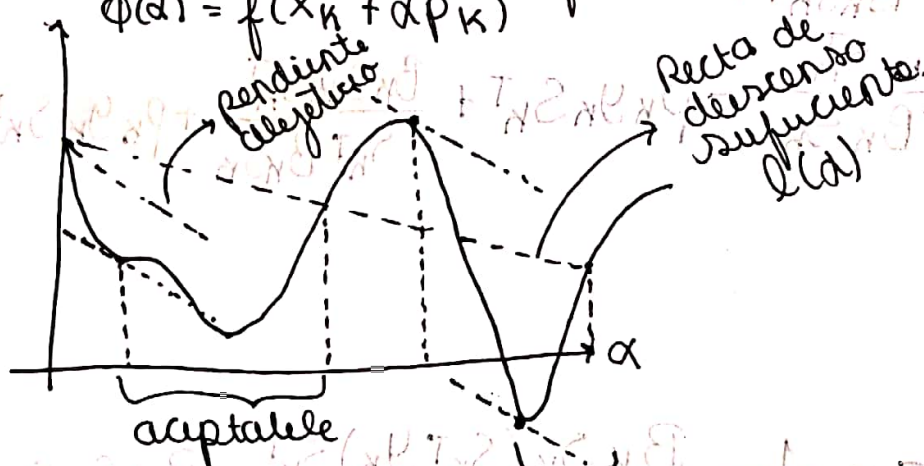 φ(α) = f(x_k + αp_k)
pendiente
objetivo
Recta de
descenso
suficiente
l(α)
α
aceptable